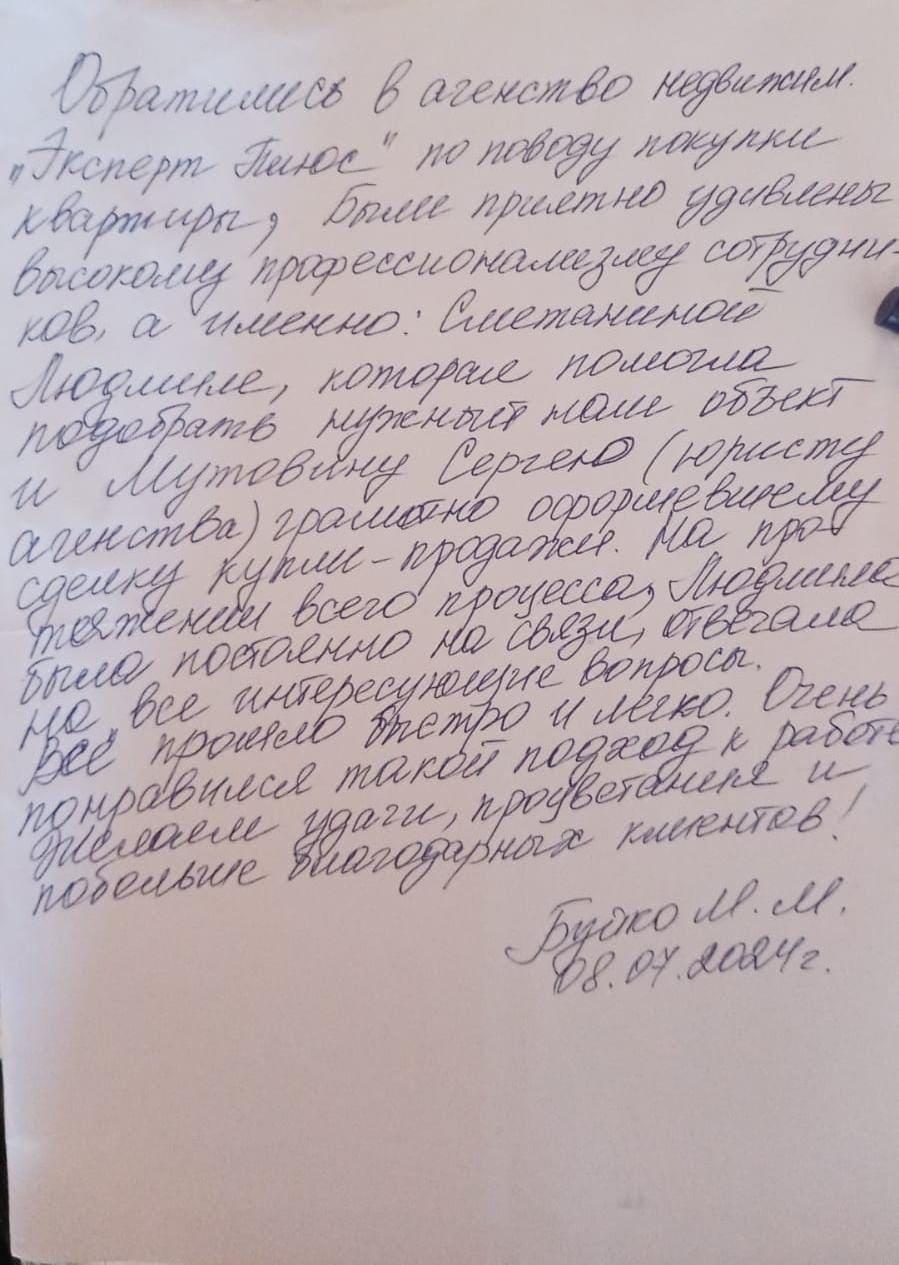 Обратились в агенство недвижим.
"Эксперт Плюс" по поводу покупки
квартиры, Были приятно удивлены
высокому профессионализму сотрудни-
ков, а именно: Сметаниной
Людмиле, которая помогла
подобрать нужный нам объект
и Мутовину Сергею (юристу
агенства) грамотно оформевшему
сделку купли-продажи. На про-
тяжении всего процесса, Людмила
была постоянно на связи, отвечала
на все интересующие вопросы.
Всё прошло быстро и легко. Очень
понравился такой подход к работе
Желаем удачи, процветания и
побольше благодарных клиентов!
Буйко М. М.
08.07.2024г.